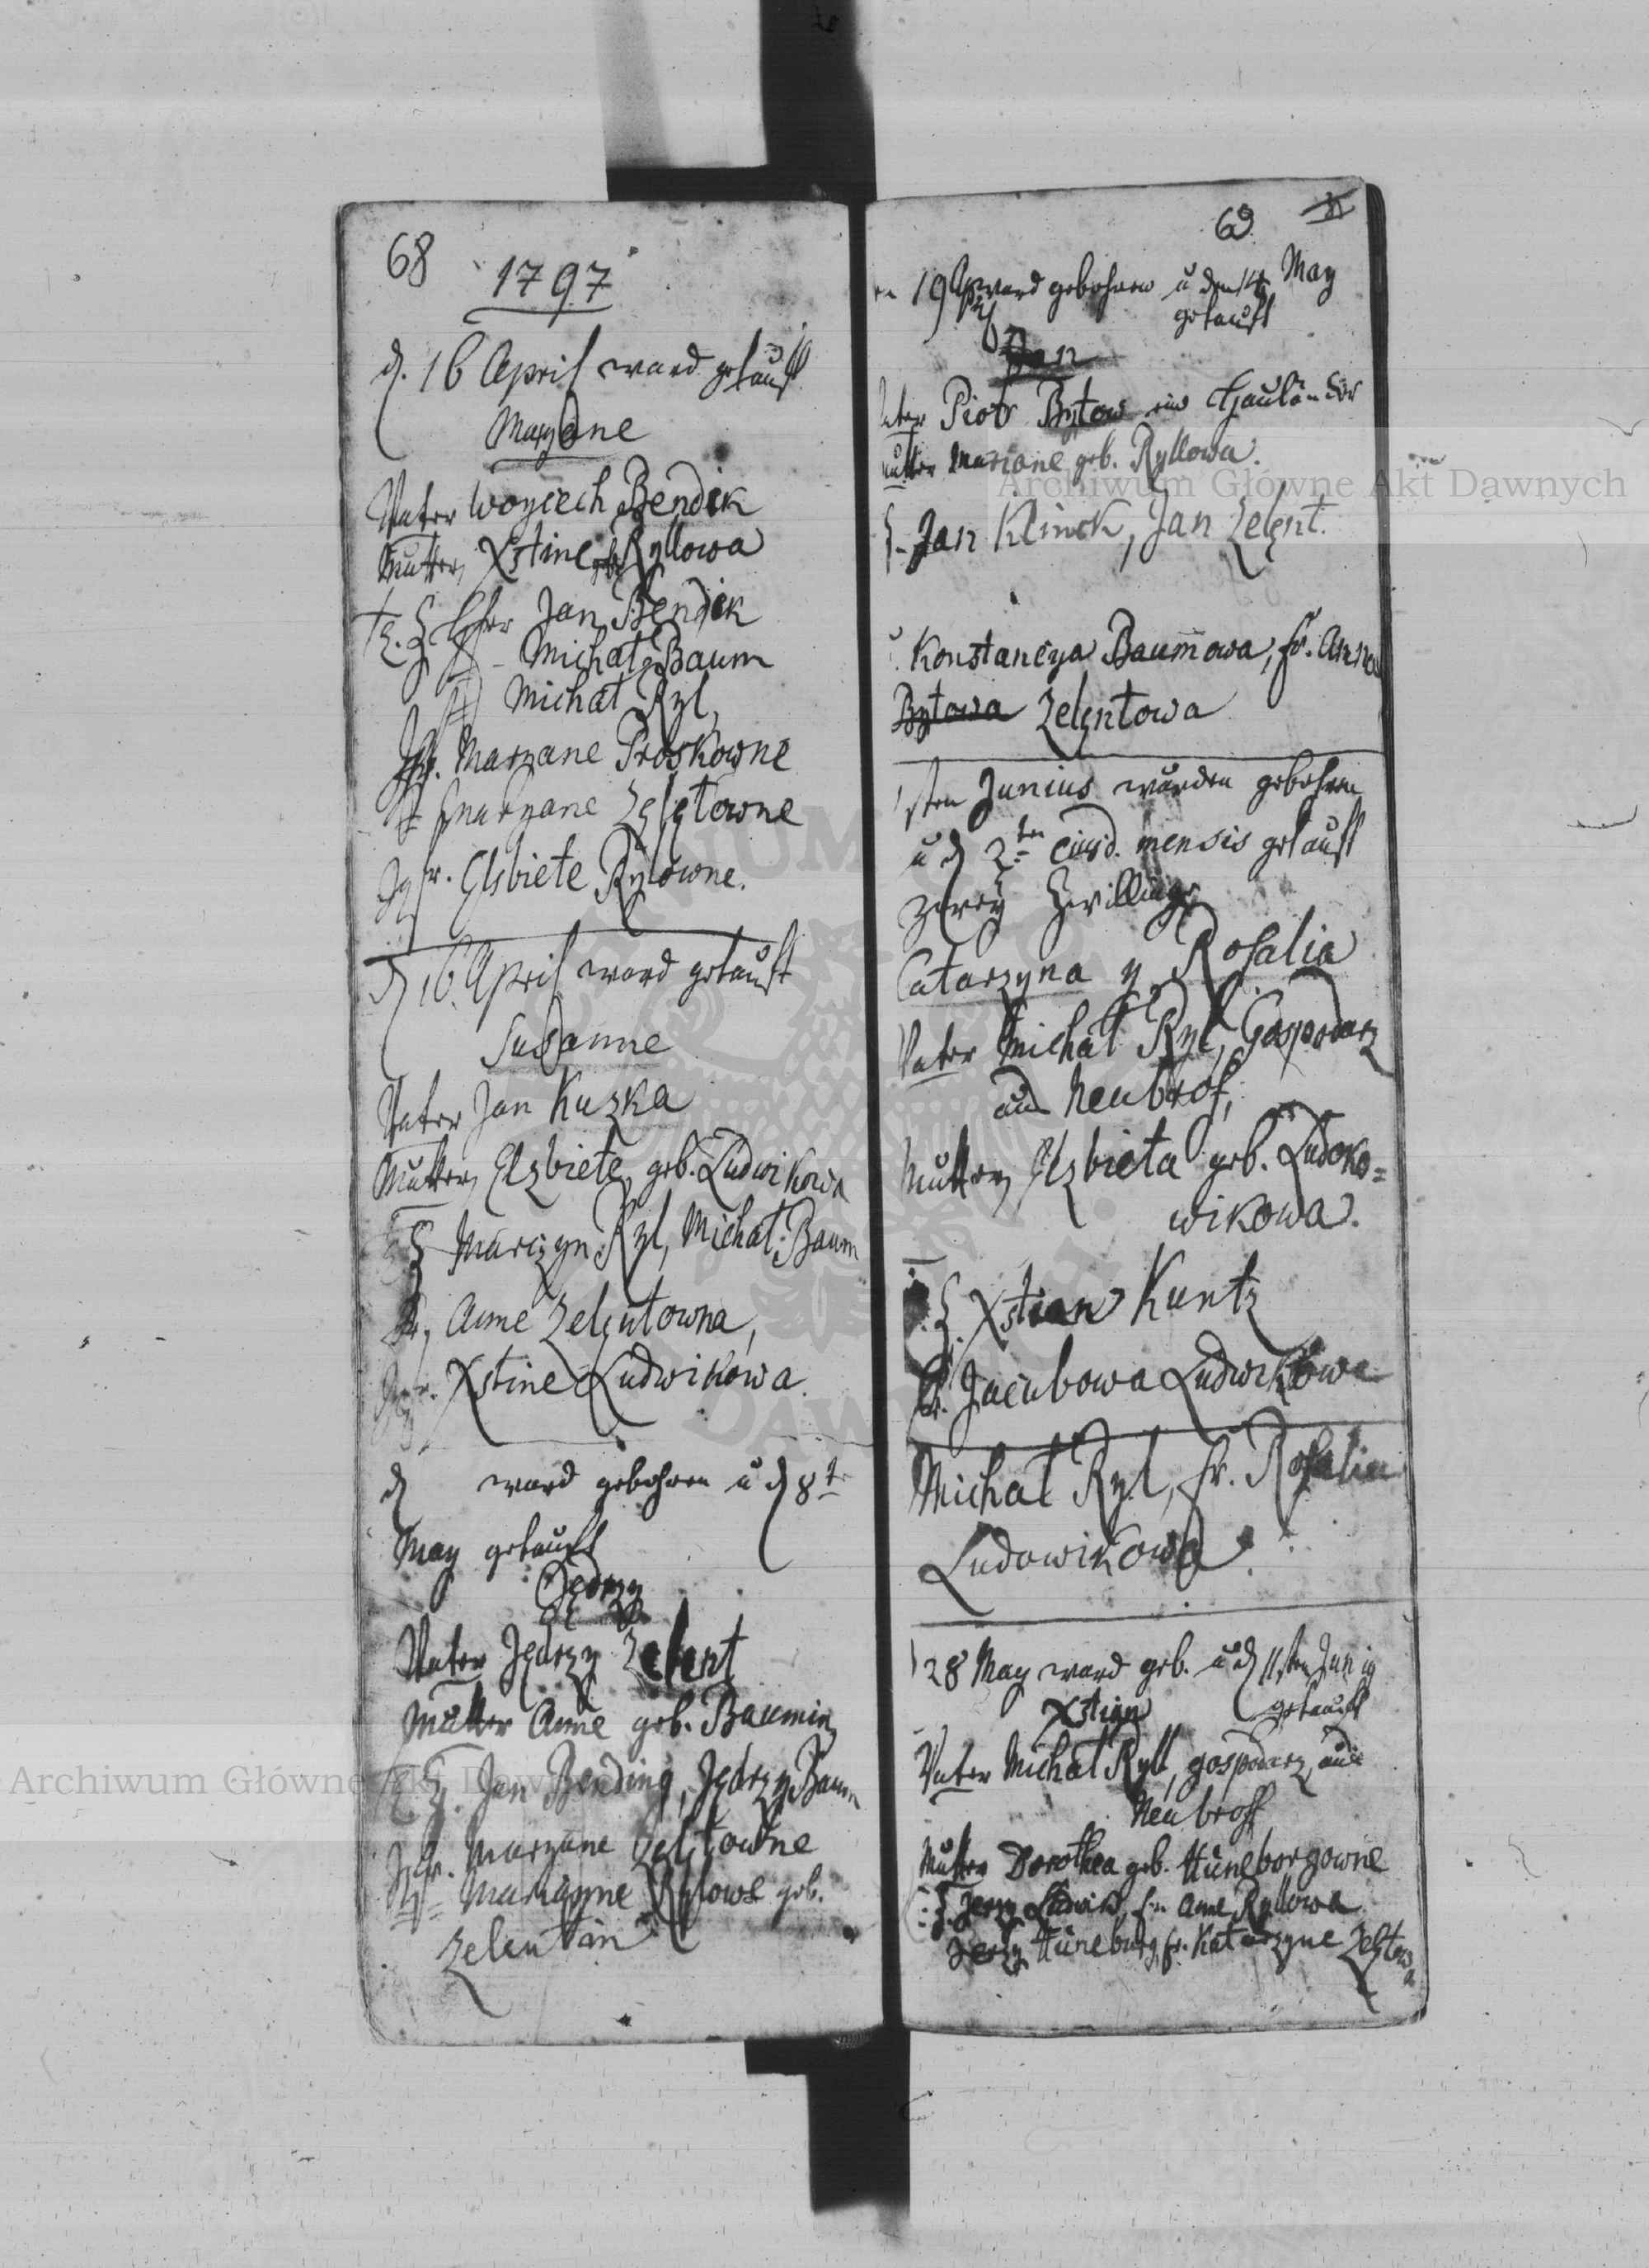 68
1797
d. 16 April ward getauft
Maryane
Vater Woyciech Bendik
Mutter Xstine geb. Ryllowa
T. Z. Jan Bendik
Michał Baum
Michał Ryl,
Jgfr. Maryane Proskowne
Maryane Zelętowne
Jgfr. Elsbiete Rylowne.
d 16 April ward getauft
Susanne
Vater Jan Kuzka
Mutter Elzbiete geb. Ludwikowa
T Z Marcyn Ryl, Michał Baum
Fr. Anne Zelentowna,
Jgfr. Xstine Ludwikowa.
d ward gebohren u d 8t
May getauft
Jędrzy
Vater Jędrzy Zelent
Mutter Anne geb. Baumin
T Z. Jan Bending, Jędrzy Baum
Jgfr. Maryane Zeltowne
Marianne Rylowa geb.
Zelentin
69
19 Apr ward gebohren u den 14 May
getauft
Jan
Vater Piotr Bytow ein Hauländer
Mutter Mariane geb. Ryllowa.
Z. Jan Klinck, Jan Zelęnt.
Konstancya Baumowa, fr. Anna
Bytowa Zelęntowa
1sten Junius wurden gebohren
u d 2ten eiusd. mensis getauft
zwey Zwillinge
Catarzyna y Rosalia
Vater Michał Ryl, Gospodarz
aus Neubrof,
Mutter Elzbieta geb. Ludo=
wikowa.
Z. Xstian Kuntz
fr. Jacubowa Ludwikowa
Michał Ryl, fr. Rosalia
Ludowikowa.
28 May ward geb. u d 11sten Juny
Xstian getauft
Vater Michał Ryll, gospodarz, aus
Neubroff
Mutter Dorothea geb. Hüneborgowne
T. Z. Jerzy Ludwik, fr. Anne Ryllowa
Jerzy Hüneburg, fr. Katarzyne Zeltowa
Archiwum Główne Akt Dawnych
Archiwum Główne Akt Dawnych